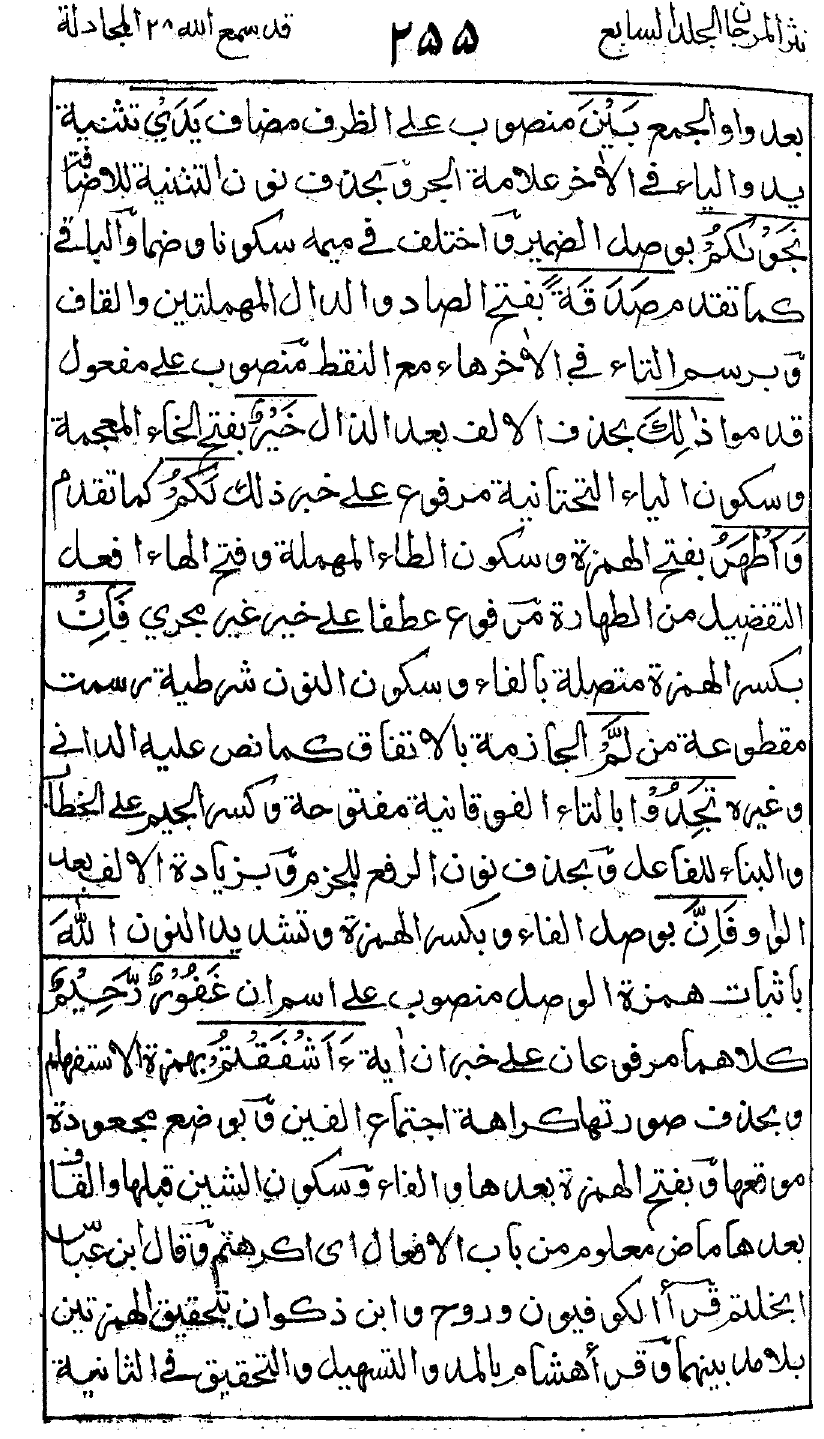 نثر المرجان الجلد السابع ٢٥٥ قد سمع الله ٢٨ المجادلة
بعد واو الجمع بَيْنَ منصوب على الظرف مضاف يَدَيْ تثنية
يد والياء في الاٰخر علامة الجر وّبحذف نون التثنية للاضافة
نَجْوٰىكُمْ بوصل الضمير وّاختلف في ميمه سكونا وضما وّالباقي
كما تقدم صَدَقَةً بفتح الصاد والدال المهملتين والقاف
وّبرسم التاء في الاٰخر هاء مع النقط مّنصوب على مفعول
قدموا ذٰلِكَ بحذف الالف بعد الذال خَيْرٌ بفتح الخاء المعجمة
وسكون الياء التحتانية مرفوع على خبر ذلك لَكُمْ كما تقدم
وَاَطْهَرُ بفتح الهمزة وسكون الطاء المهملة وفتح الهاء افعل
التفضيل من الطهارة مّرفوع عطفا على خير غير مجري فَاِنْ
بكسر الهمزة متصلة بالفاء وسكون النون شرطية رسمت
مقطوعة من لَّمْ الجازمة بالاتفاق كما نص عليه الداني
وغيره تَجِدُوْا بالتاء الفوقانية مفتوحة وكسر الجيم على الخطاب
والبناء للفاعل وّبحذف نون الرفع للجزم وّبزيادة الالف بعد
الواو فَاِنَّ بوصل الفاء وبكسر الهمزة وتشديد النون اللّٰهَ
باثبات همزة الوصل منصوب على اسم ان غَفُوْرٌ رَّحِيْمٌ
كلاهما مرفوعان على خبر ان اٰية ءَاَشْفَقْتُمْ بهمزة الاستفهام
وبحذف صورتها كراهة اجتماع الفين وّبوضع مجعودة
موقعها وّبفتح الهمزة بعدها والفاء وّسكون الشين قبلها والقاف
بعدها ماض معلوم من باب الافعال اى اكرهتم وّقال ابن عبّاس
ابخلتم قّرأ الكوفيون وروح وابن ذكوان بتحقيق الهمزتين
بلا مد بينهما وّقرأ هشام بالمد والتسهيل والتحقيق في الثانية